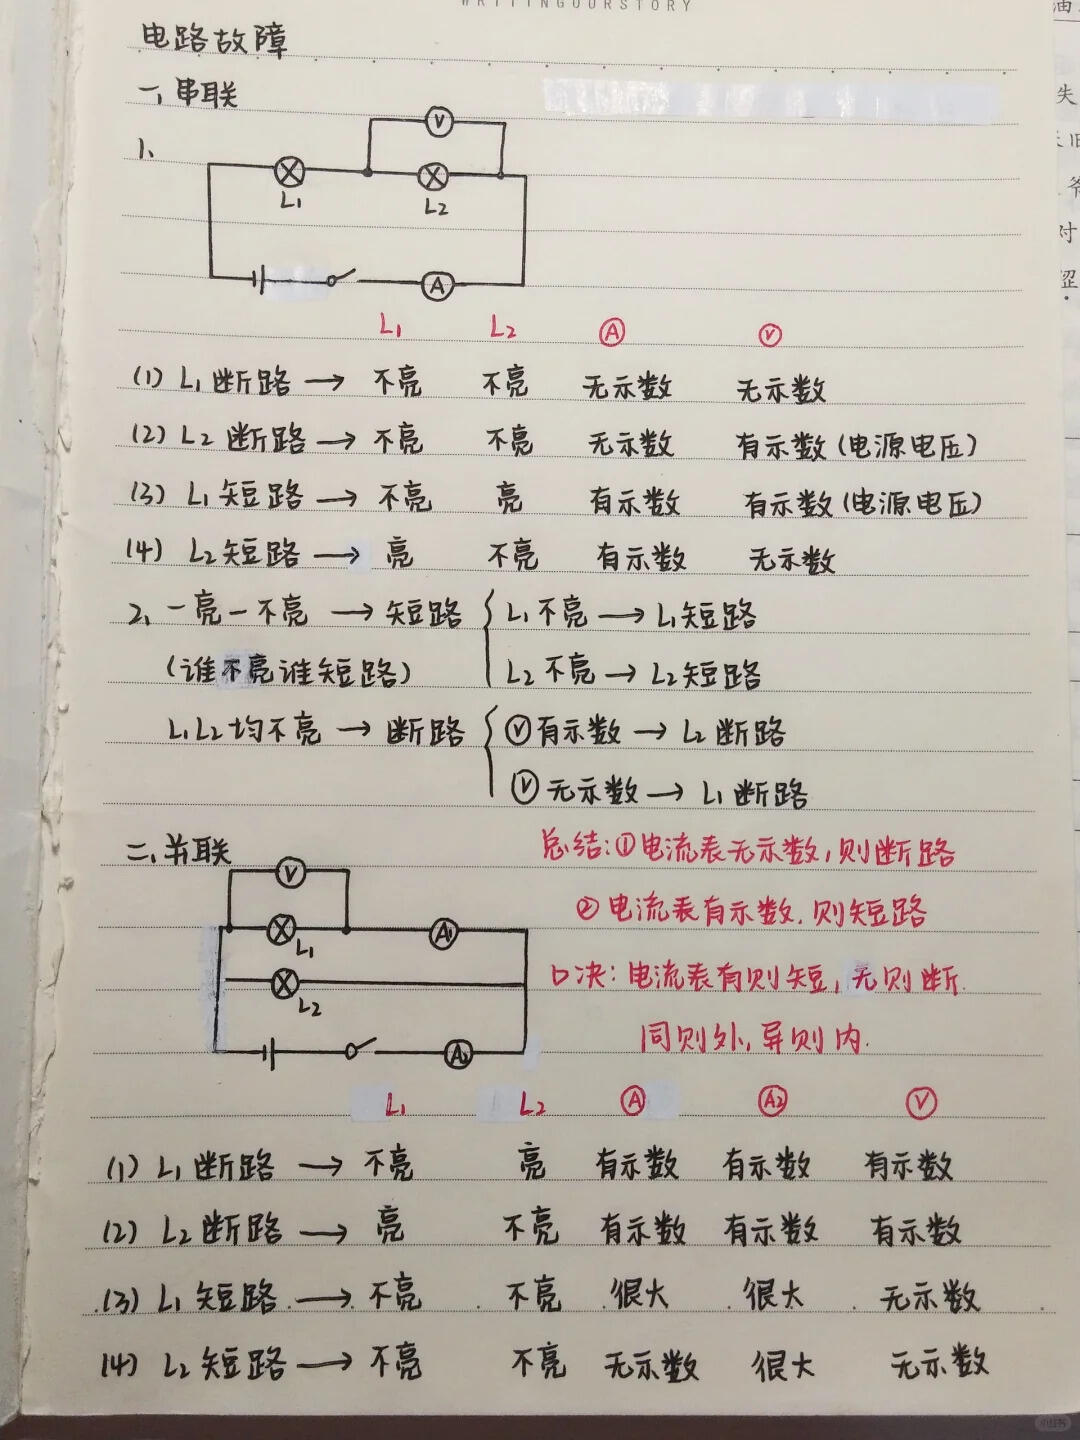 WRITINGOURSTORY
电路故障
一、串联
1、
V
L1
L2
A
L1 L2 A V
(1) L1断路 → 不亮 不亮 无示数 无示数
(2) L2断路 → 不亮 不亮 无示数 有示数(电源电压)
(3) L1短路 → 不亮 亮 有示数 有示数(电源电压)
(4) L2短路 → 亮 不亮 有示数 无示数
2、一亮一不亮 → 短路 { L1不亮 → L1短路
(谁不亮谁短路) L2不亮 → L2短路
L1L2均不亮 → 断路 { Ⓥ有示数 → L2断路
Ⓥ无示数 → L1断路
二、并联
V
L1
A1
L2
A2
总结:①电流表无示数,则断路
②电流表有示数.则短路
口决:电流表有则短,无则断.
同则外,异则内.
L1 L2 A A2 V
(1) L1断路 → 不亮 亮 有示数 有示数 有示数
(2) L2断路 → 亮 不亮 有示数 有示数 有示数
(3) L1短路 → 不亮 不亮 很大 很大 无示数
(4) L2短路 → 不亮 不亮 无示数 很大 无示数
小红书
失
对